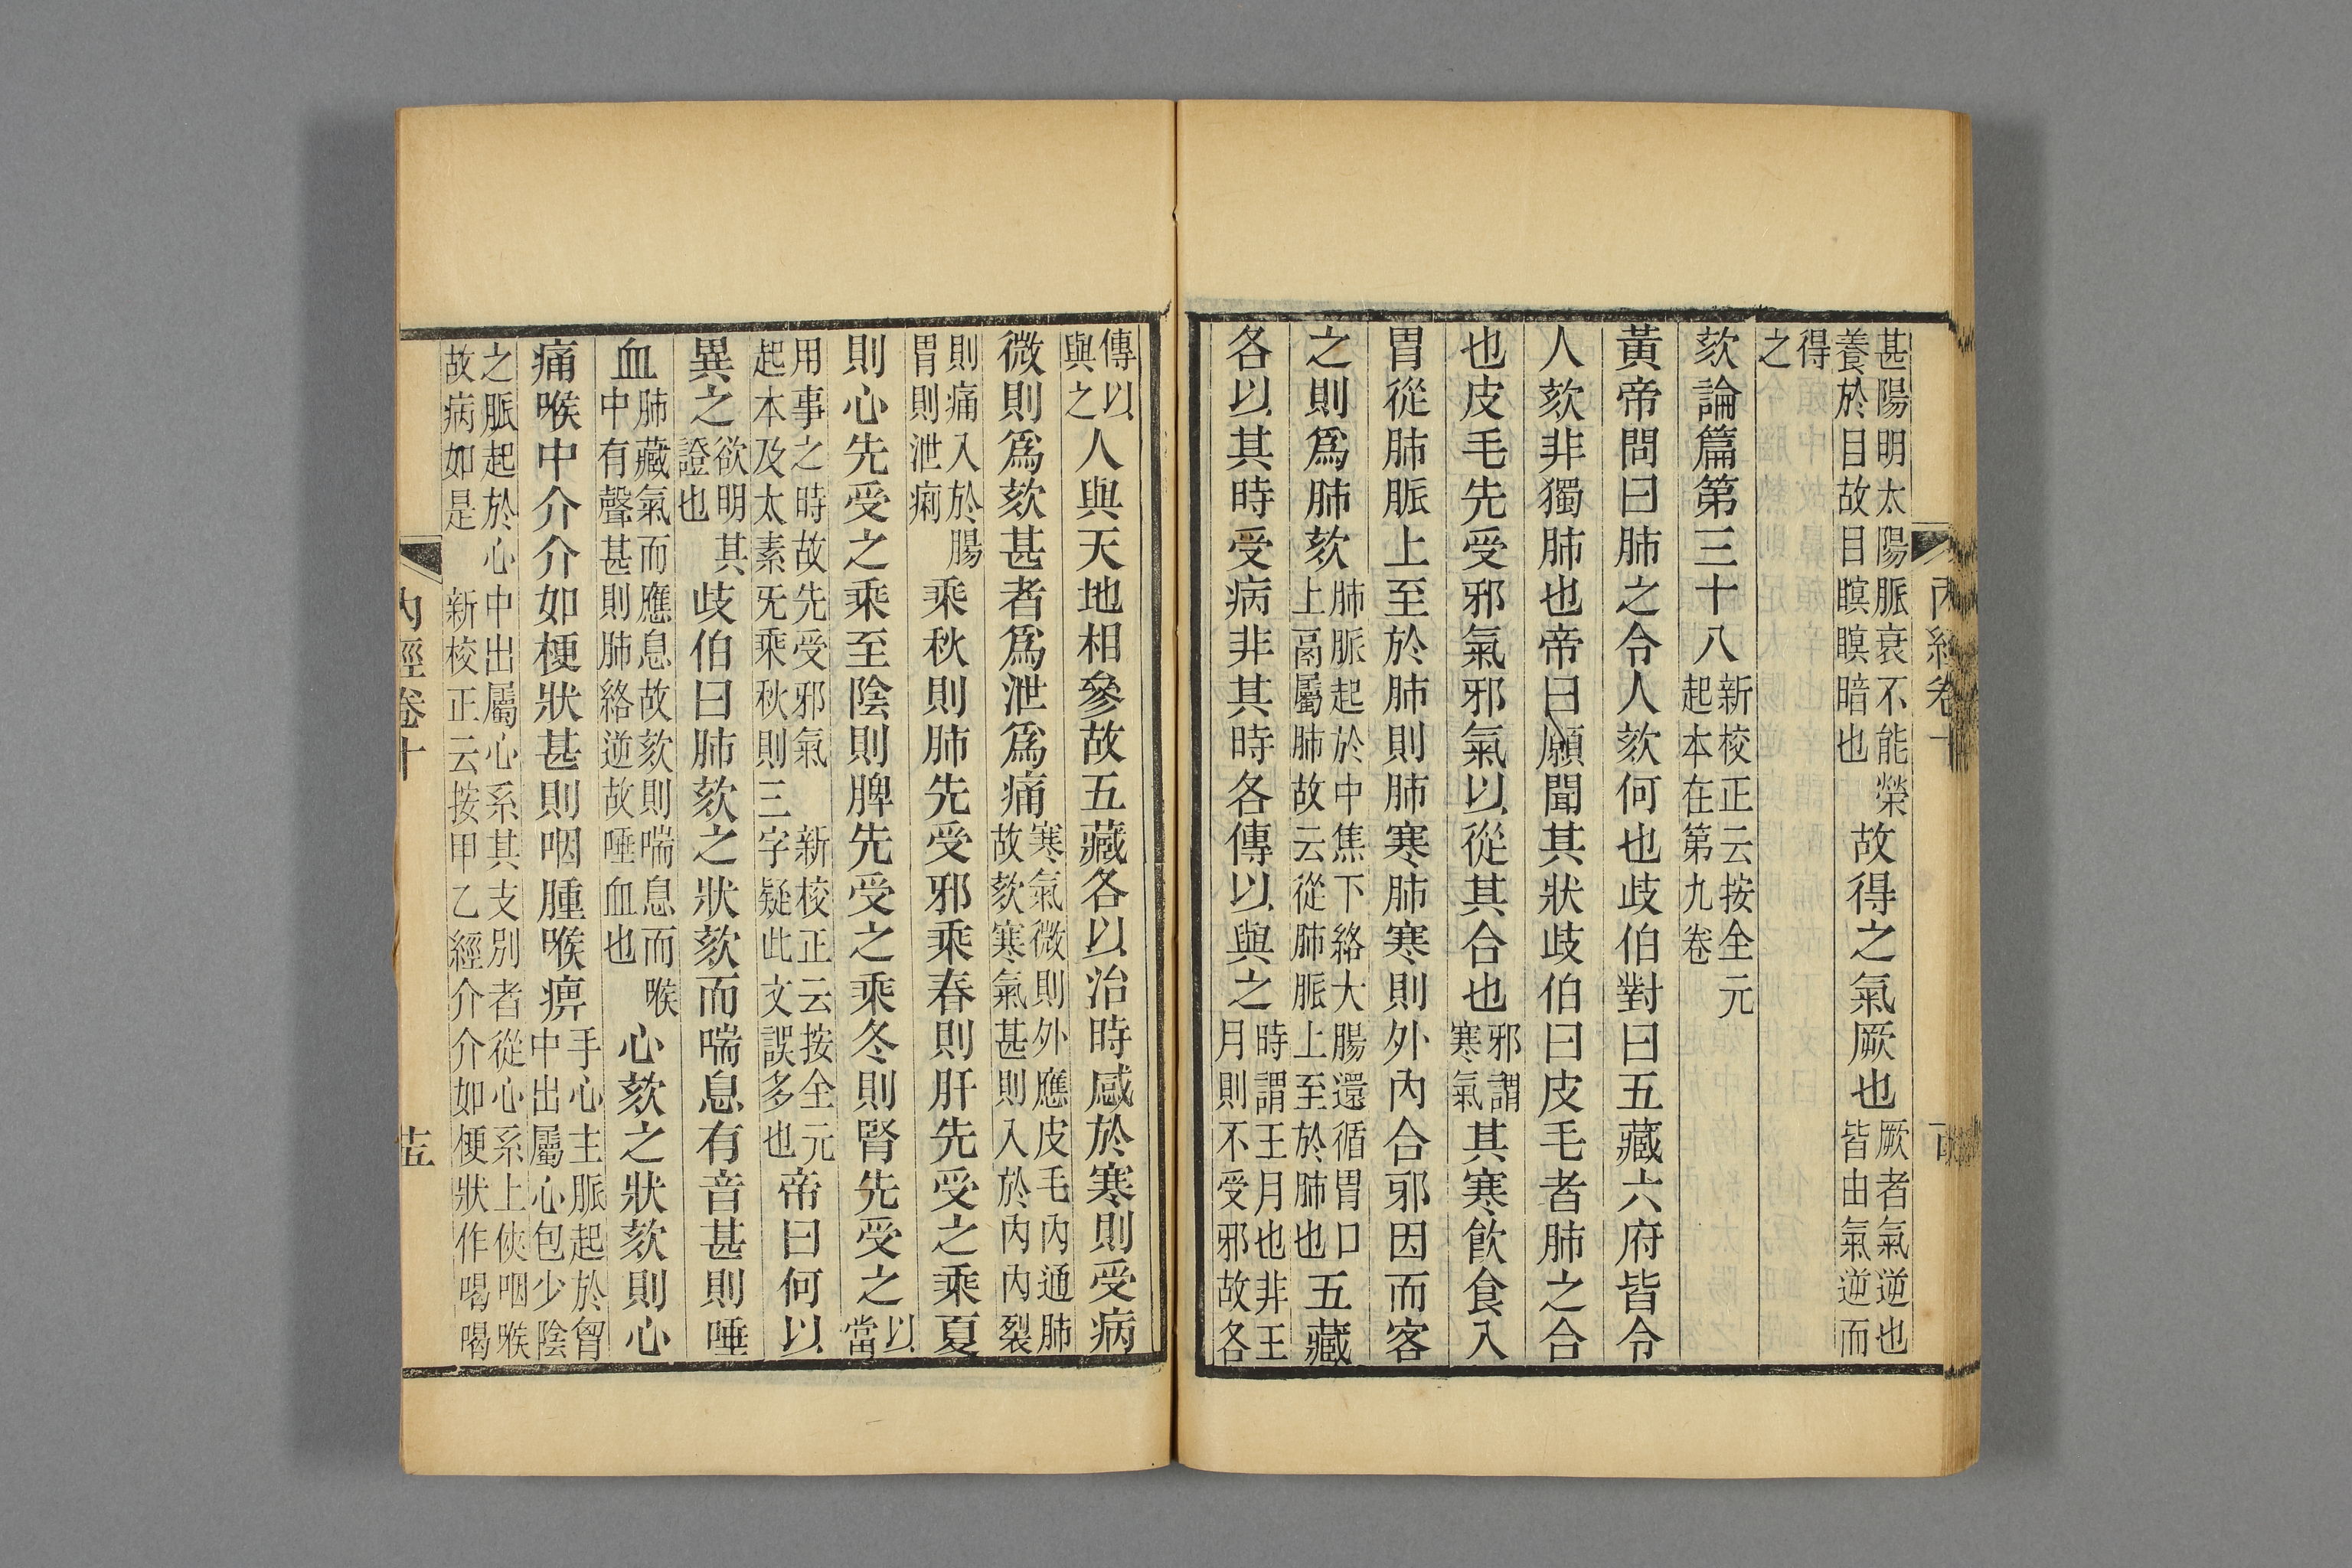 甚陽明太陽脈衰不能榮
養於目故目瞑瞑暗也
故得之氣厥也
厥者氣逆也
皆由氣逆而
得
之
欬論篇第三十八
新校正云按全元
起本在第九卷
黃帝問曰肺之令人欬何也歧伯對曰五藏六府皆令
人欬非獨肺也帝曰願聞其狀歧伯曰皮毛者肺之合
也皮毛先受邪氣邪氣以從其合也
邪謂
寒氣
其寒飲食入
胃從肺脈上至於肺則肺寒肺寒則外內合邪因而客
之則爲肺欬
肺脈起於中焦下絡大腸還循胃口
上鬲屬肺故云從肺脈上至於肺也
五藏
各以其時受病非其時各傳以與之
時謂王月也非王
月則不受邪故各
傳以
與之
人與天地相參故五藏各以治時感於寒則受病
微則爲欬甚者爲泄爲痛
寒氣微則外應皮毛內通肺
故欬寒氣甚則入於內內裂
則痛入於腸
胃則泄痢
乘秋則肺先受邪乘春則肝先受之乘夏
則心先受之乘至陰則脾先受之乘冬則腎先受之
以
當
用事之時故先受邪氣 新校正云按全元
起本及太素旡乘秋則三字疑此文誤多也
帝曰何以
異之
欲明其
證也
歧伯曰肺欬之狀欬而喘息有音甚則唾
血
肺藏氣而應息故欬則喘息而喉
中有聲甚則肺絡逆故唾血也
心欬之狀欬則心
痛喉中介介如梗狀甚則咽腫喉痹
手心主脈起於胷
中出屬心包少陰
之脈起於心中出屬心系其支別者從心系上俠咽喉
故病如是 新校正云按甲乙經介介如梗狀作喝喝
內經卷十
十五